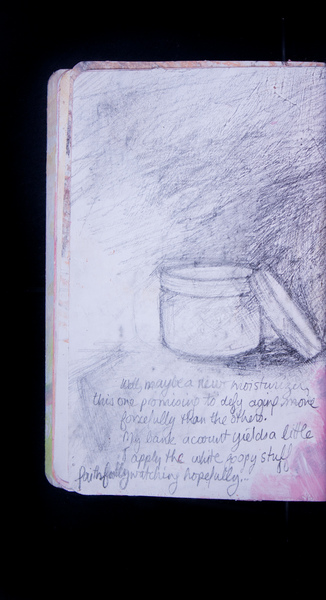 Well, maybe a new moisturizer,
this one promising to defy aging more
forcefully than the others.
My bank account yields a little
I apply the white goopy stuff
faithfully watching hopefully...